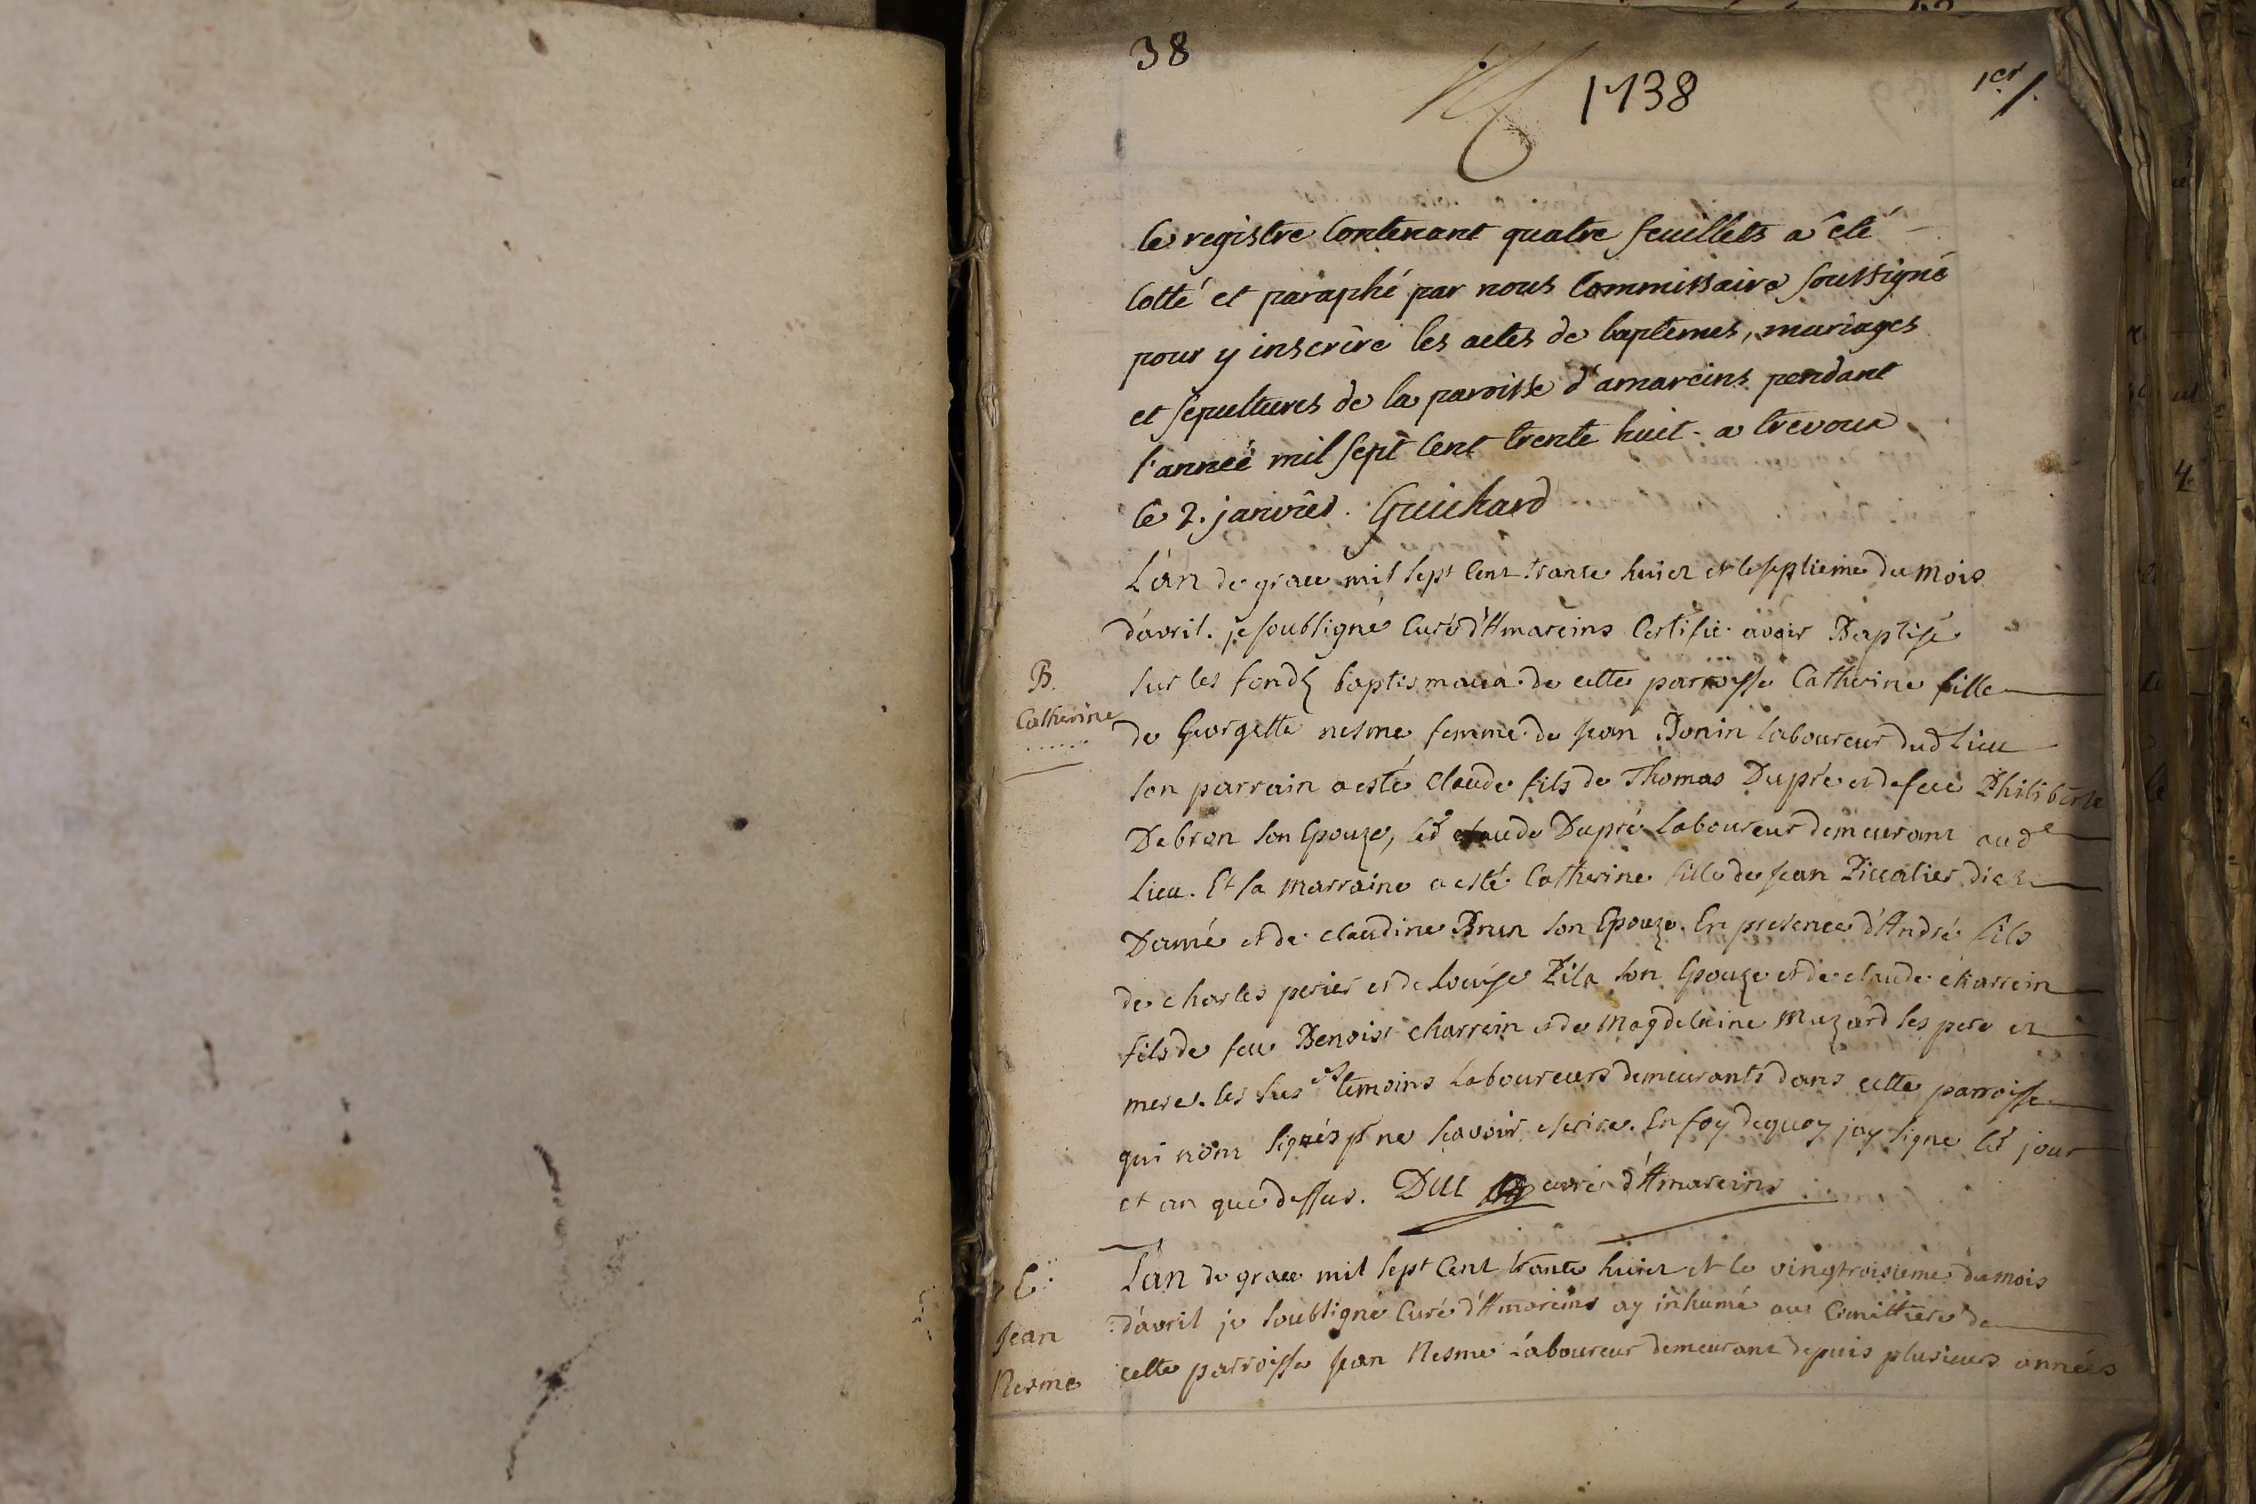 38
1738
1er /.
Ce registre Contenant quatre feuillets a êté
Cotté et paraphé par nous Commissaire Soussigné
pour y inscrire les actes de baptemes, mariages
et Sepultures de la paroisse d'amareins pendant
l'anneé mil Sept Cent trente huit. a trevoux
le 2. janvier. Guichard
L'an de grace mil sept Cent trante huict et le septieme du mois
d'avril. je soubsigné Curé d'Amareins Certifie avoir Baptisé
B.
sur les fonds baptismaux de cette parroisse Catherine fille
Catherine
de Georgette nesme femme de Jean Bonin laboureur dud lieu
son parrain a esté Claude fils de Thomas Dupré et de feue Philiberte
Debron son Epouze, led Claude Dupré laboureur demeurant aud
lieu. Et sa marraine a esté Catherine fille de Jean dict
Damé et de Claudine Brun son Epouze. En presence d'André fils
de charles perier et de Louise son Epouze et de claude charrein
fils de feu Benoist charrein et de Magdeleine Mazard ses pere et
mere. les sus temoins laboureurs demeurants dans cette parroisse
qui n'ont signés pr ne scavoir escrire. En foy de quoy j'ay signe led jour
et an que dessus. curé d'Amareins
L'an de grace mil sept Cent trante huict et le vingtroisieme du mois
Jean
d'avril je soubsigné Curé d'Amareins ay inhumé au Cimittiere de
Nesme
cette parroisse Jean Nesme Laboureur demeurant depuis plusieurs années